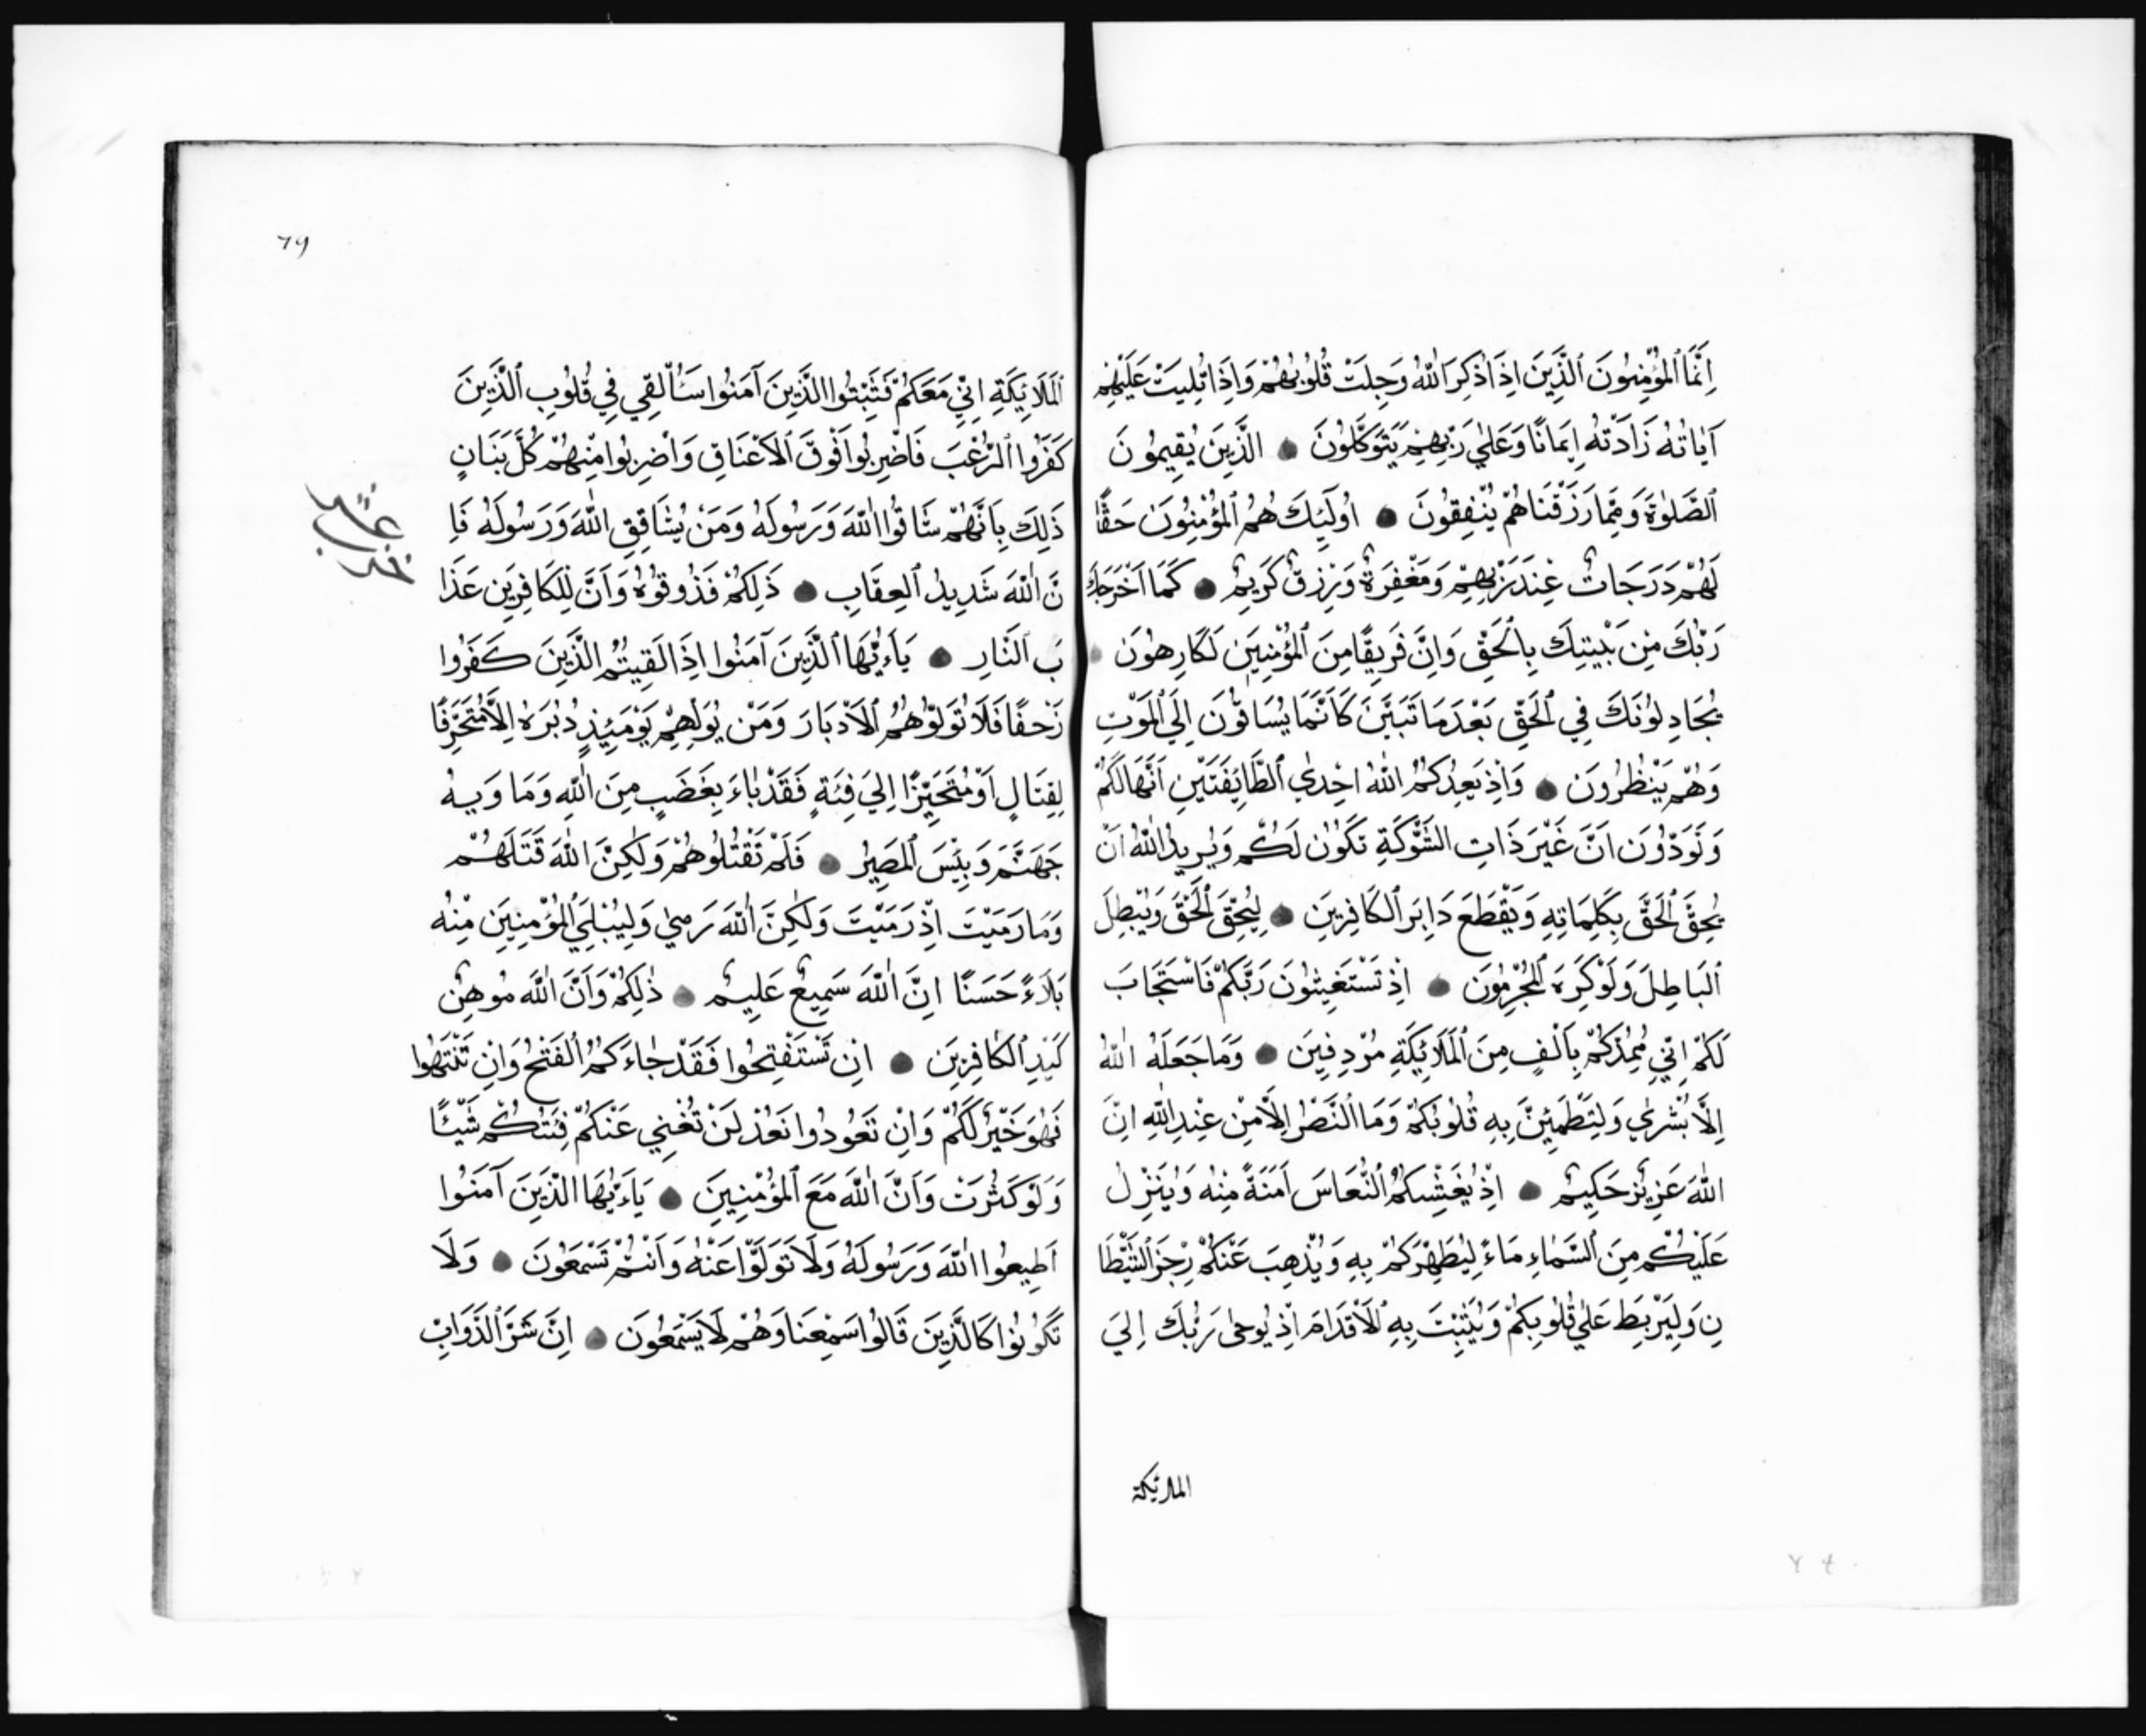 اِنَّمَا ٱلْمُؤْمِنُونَ ٱلَّذِينَ اِذَا ذُكِرَ ٱللّٰهُ وَجِلَتْ قُلُوبُهُمْ وَاِذَا تُلِيَتْ عَلَيْهِمْ
آيَاتُهُ زَادَتْهُ اِيمَانًا وَعَلٰي رَبِّهِمْ يَتَوَكَّلُونَ ● الَّذِينَ يُقِيمُونَ
ٱلصَّلٰوةَ وَمِمَّا رَزَقْنَاهُمْ يُنْفِقُونَ ● اُولَٰٓئِكَ هُمُ ٱلْمُؤْمِنُونَ حَقًّا
لَهُمْ دَرَجَاتٌ عِنْدَ رَبِّهِمْ وَمَغْفِرَةٌ وَرِزْقٌ كَرِيمٌ ● كَمَا اَخْرَجَكَ
رَبُّكَ مِنْ بَيْتِكَ بِٱلْحَقِّ وَاِنَّ فَرِيقًا مِنَ ٱلْمُؤْمِنِينَ لَكَارِهُونَ ●
يُجَادِلُونَكَ فِي ٱلْحَقِّ بَعْدَ مَا تَبَيَّنَ كَاَنَّمَا يُسَاقُونَ اِلَي ٱلْمَوْتِ
وَهُمْ يَنْظُرُونَ ● وَاِذْ يَعِدُكُمُ ٱللّٰهُ اِحْدٰي ٱلطَّائِفَتَيْنِ اَنَّهَا لَكُمْ
وَتَوَدُّونَ اَنَّ غَيْرَ ذَاتِ الشَّوْكَةِ تَكُونُ لَكُمْ وَيُرِيدُ ٱللّٰهُ اَنْ
يُحِقَّ ٱلْحَقَّ بِكَلِمَاتِهِ وَيَقْطَعَ دَابِرَ ٱلْكَافِرِينَ ● لِيُحِقَّ ٱلْحَقَّ وَيُبْطِلَ
ٱلْبَاطِلَ وَلَوْ كَرِهَ ٱلْمُجْرِمُونَ ● اِذْ تَسْتَغِيثُونَ رَبَّكُمْ فَاسْتَجَابَ
لَكُمْ اِنِّي مُمِدُّكُمْ بِاَلْفٍ مِنَ ٱلْمَلَائِكَةِ مُرْدِفِينَ ● وَمَا جَعَلَهُ ٱللّٰهُ
اِلَّا بُشْرٰي وَلِتَطْمَئِنَّ بِهِ قُلُوبُكُمْ وَمَا ٱلنَّصْرُ اِلَّا مِنْ عِنْدِ ٱللّٰهِ اِنَّ
ٱللّٰهَ عَزِيزٌ حَكِيمٌ ● اِذْ يُغَشِّيكُمُ ٱلنُّعَاسَ اَمَنَةً مِنْهُ وَيُنَزِّلُ
عَلَيْكُمْ مِنَ ٱلسَّمَاءِ مَاءً لِيُطَهِّرَكُمْ بِهِ وَيُذْهِبَ عَنْكُمْ رِجْزَ ٱلشَّيْطَا
نِ وَلِيَرْبِطَ عَلٰي قُلُوبِكُمْ وَيُثَبِّتَ بِهِ ٱلْاَقْدَامَ اِذْ يُوحٰي رَبُّكَ اِلَي
الملائكة
٦٩
ٱلْمَلَائِكَةِ اِنِّي مَعَكُمْ فَثَبِّتُوا الَّذِينَ آمَنُوا سَاُلْقِي فِي قُلُوبِ ٱلَّذِينَ
كَفَرُوا ٱلرُّعْبَ فَاضْرِبُوا فَوْقَ ٱلْاَعْنَاقِ وَاضْرِبُوا مِنْهُمْ كُلَّ بَنَانٍ
ذَلِكَ بِاَنَّهُمْ شَاقُّوا ٱللّٰهَ وَرَسُولَهُ وَمَنْ يُشَاقِقِ ٱللّٰهَ وَرَسُولَهُ فَاِ
نَّ ٱللّٰهَ شَدِيدُ ٱلْعِقَابِ ● ذَلِكُمْ فَذُوقُوهُ وَاَنَّ لِلْكَافِرِينَ عَذَا
بَ ٱلنَّارِ ● يَاءَيُّهَا ٱلَّذِينَ آمَنُوا اِذَا لَقِيتُمُ الَّذِينَ كَفَرُوا
زَحْفًا فَلَا تُوَلُّوهُمُ ٱلْاَدْبَارَ وَمَنْ يُوَلِّهِمْ يَوْمَئِذٍ دُبُرَهُ اِلَّا مُتَحَرِّفًا
لِقِتَالٍ اَوْ مُتَحَيِّزًا اِلَي فِئَةٍ فَقَدْ بَاءَ بِغَضَبٍ مِنَ ٱللّٰهِ وَمَا وَيهُ
جَهَنَّمَ وَبِئْسَ ٱلْمَصِيرُ ● فَلَمْ تَقْتُلُوهُمْ وَلَكِنَّ ٱللّٰهَ قَتَلَهُمْ
وَمَا رَمَيْتَ اِذْ رَمَيْتَ وَلَكِنَّ ٱللّٰهَ رَمٰي وَلِيُبْلِيَ ٱلْمُؤْمِنِينَ مِنْهُ
بَلَاءً حَسَنًا اِنَّ ٱللّٰهَ سَمِيعٌ عَلِيمٌ ● ذٰلِكُمْ وَاَنَّ ٱللّٰهَ مُوهِنٌ
كَيْدِ ٱلْكَافِرِينَ ● اِنْ تَسْتَفْتِحُوا فَقَدْ جَاءَكُمُ ٱلْفَتْحُ وَاِنْ تَنْتَهُوا
فَهُوَ خَيْرٌ لَكُمْ وَاِنْ تَعُودُوا نَعُدْ لَنْ تُغْنِي عَنْكُمْ فِئَتُكُمْ شَيْئًا
وَلَوْ كَثُرَتْ وَاَنَّ ٱللّٰهَ مَعَ ٱلْمُؤْمِنِينَ ● يَاءَيُّهَا الَّذِينَ آمَنُوا
اَطِيعُوا ٱللّٰهَ وَرَسُولَهُ وَلَا تَوَلَّوْا عَنْهُ وَاَنْتُمْ تَسْمَعُونَ ● وَلَا
تَكُونُوا كَالَّذِينَ قَالُوا سَمِعْنَا وَهُمْ لَا يَسْمَعُونَ ● اِنَّ شَرَّ ٱلدَّوَابِّ
عشر
حزب